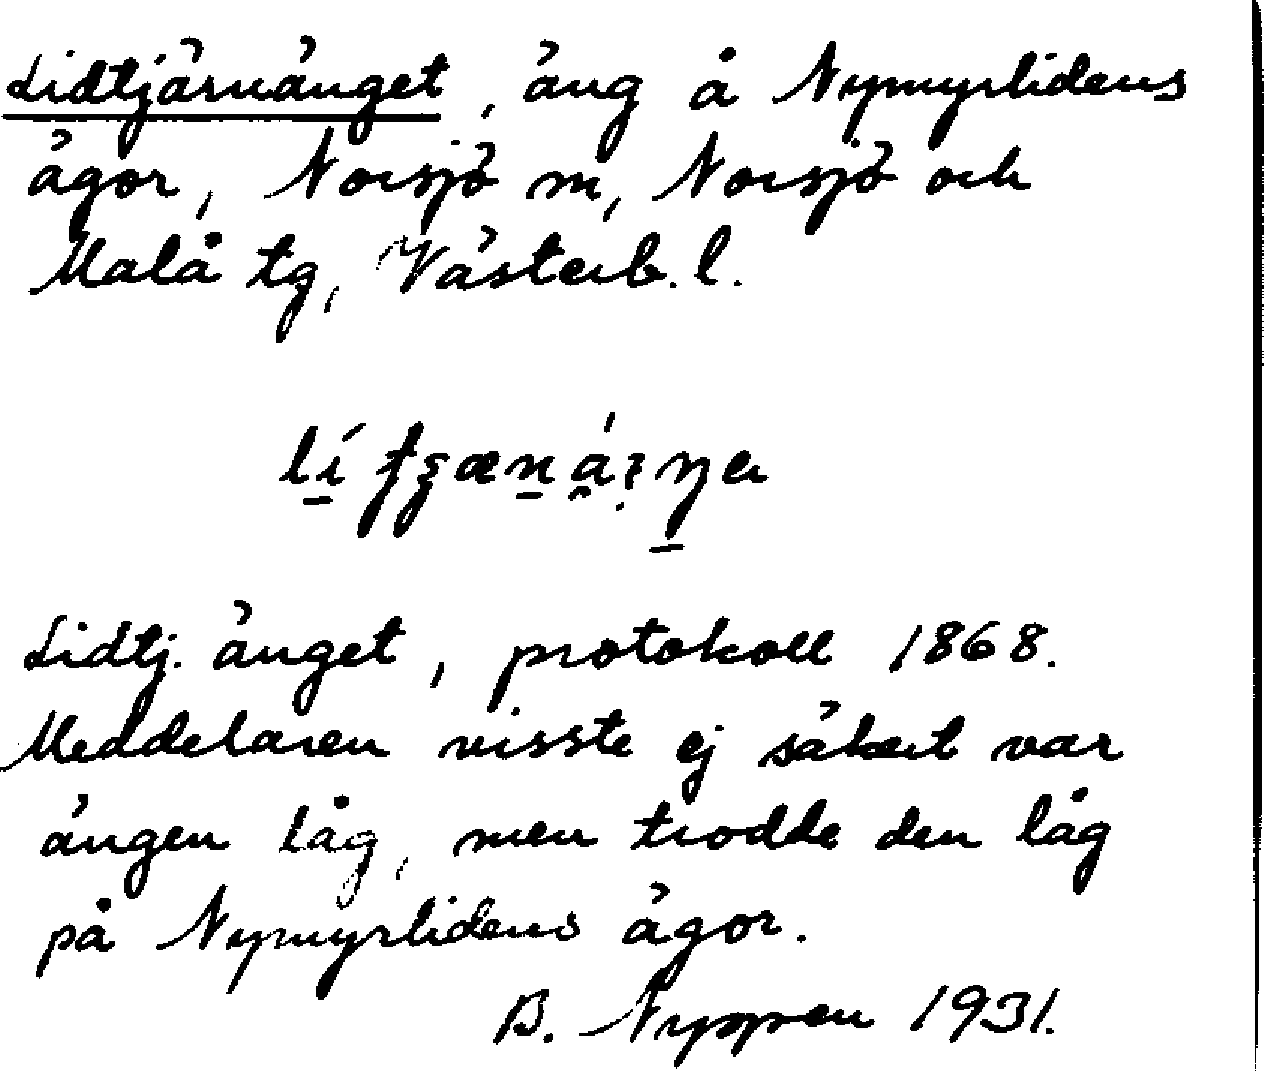 Lidtjärnänget, äng å Nymyrlidens
ägor, Norsjö m, Norsjö och
Malå tg, Västerb. l.
Lidtj. änget, protokoll 1868.
Meddelaren visste ej säkert var
ängen låg, men trodde den låg
på Nymyrlidens ägor.
B. Nyppen 1931.